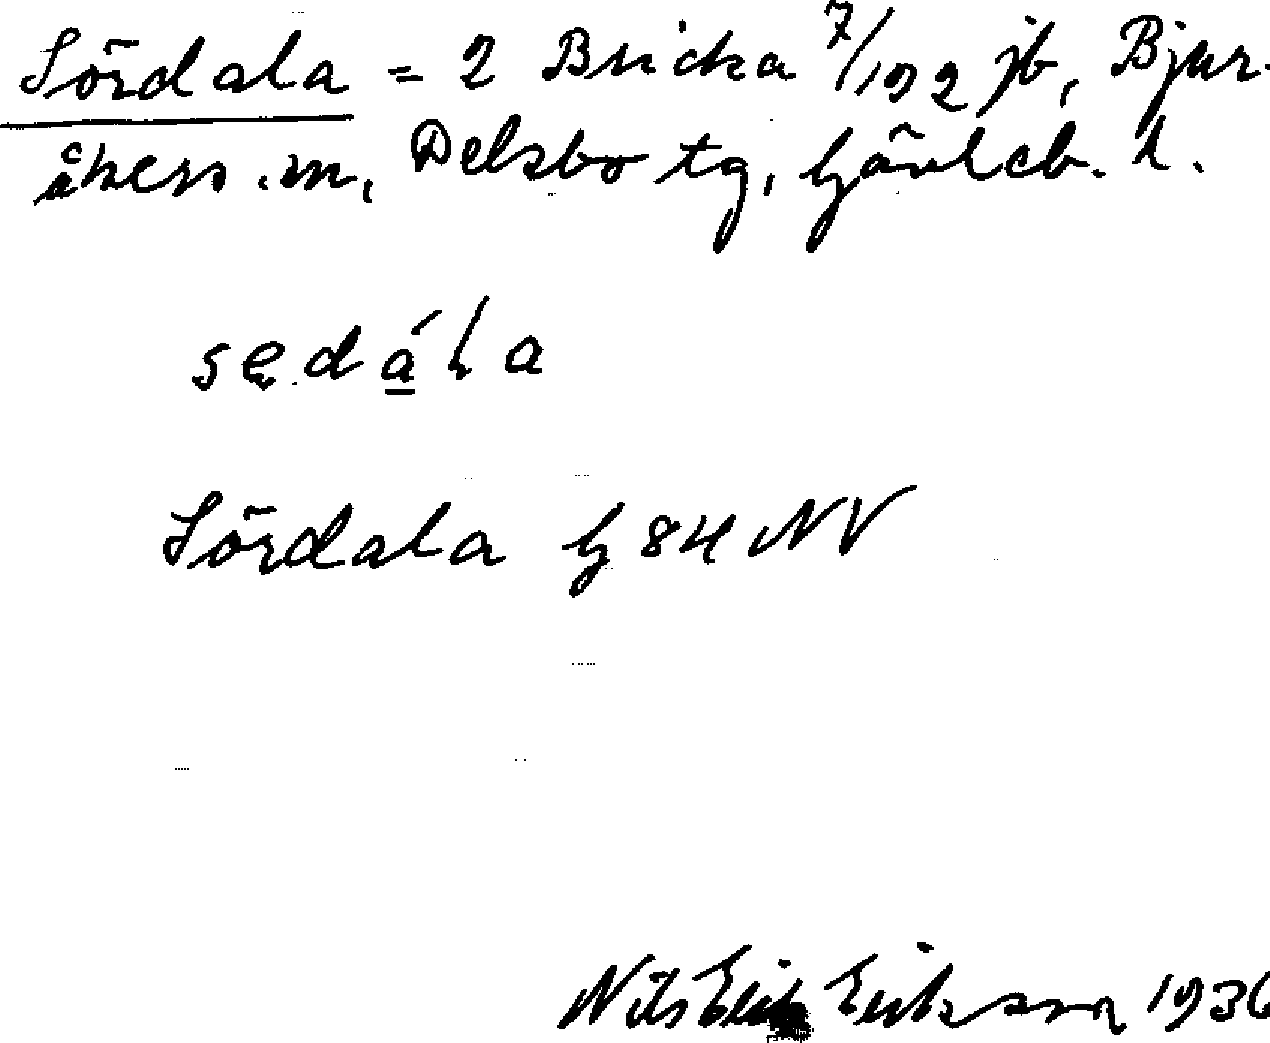 Sördala = 2 Bricka 7/192 jb, Bjur-
åkers sn, Delsbo tg, Gävleb. l.
sedála
Sördala G 84 NV
Nils Erik Eriksson 1936